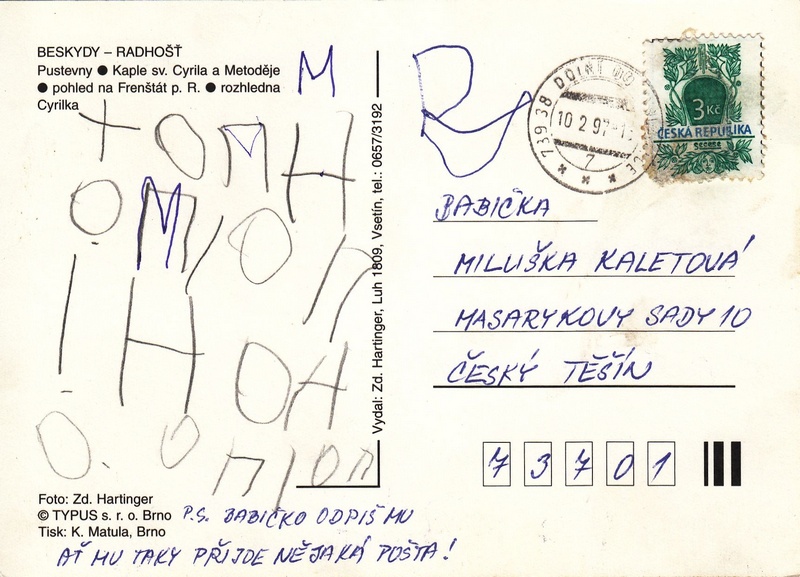 BESKYDY – RADHOŠŤ
Pustevny ● Kaple sv. Cyrila a Metoděje
● pohled na Frenštát p. R. ● rozhledna
Cyrilka
M
+ O M H
O M O
! H O H
O. O
Foto: Zd. Hartinger
© TYPUS s. r. o. Brno
Tisk: K. Matula, Brno
P.S. BABIČKO ODPIŠ MU
AŤ MU TAKY PŘIJDE NĚJAKÁ POŠTA!
Vydal: Zd. Hartinger, Luh 1809, Vsetín, tel.: 0657/3192
739 38 DOLNÍ DO
10.2.97-1
7
3 Kč
ČESKÁ REPUBLIKA
SECESE
BABIČKA
MILUŠKA KALETOVÁ
MASARYKOVY SADY 10
ČESKÝ TĚŠÍN
7 3 7 0 1